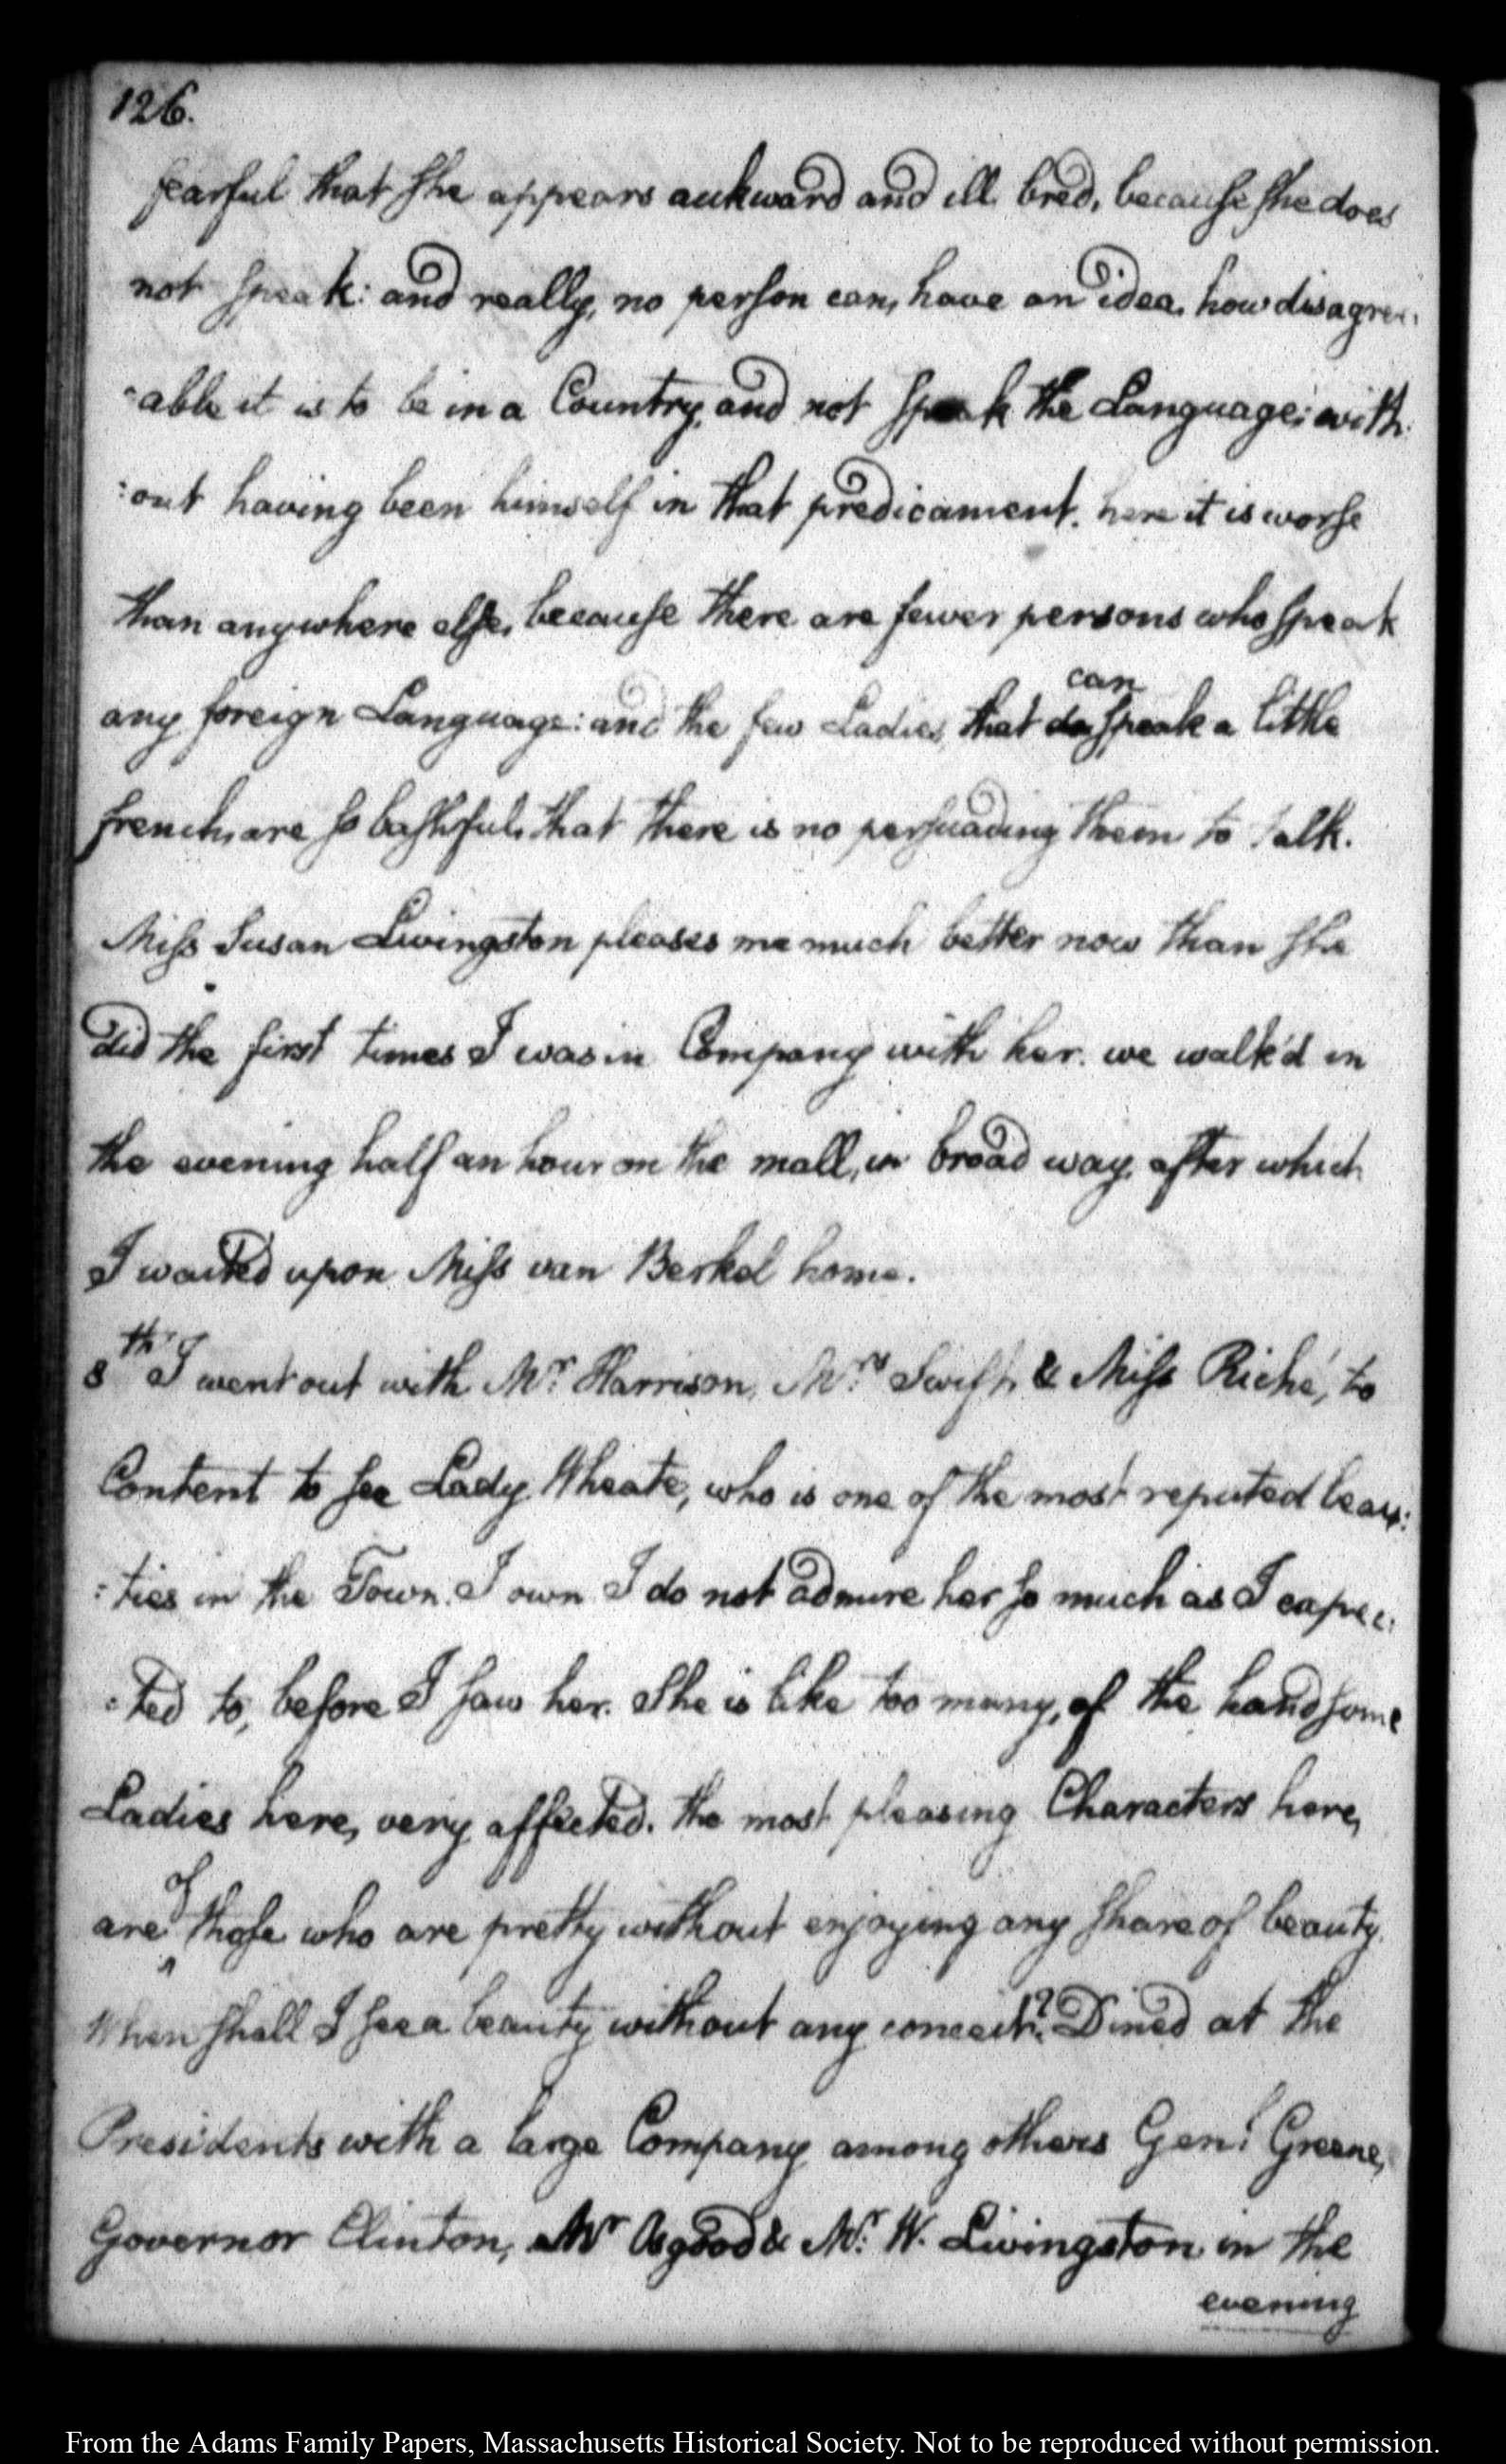 126.
fearful that she appears aukward and ill bred, because she does
not speak: and really, no person can, have an idea, how disagree:
:able it is to be in a Country, and not speak the Language; with:
:out having been himself in that predicament. here it is worse
than anywhere else, because there are fewer persons who speak
can
any foreign Language: and the few Ladies, that do speak a little
french, are so bashful, that there is no persuading them to talk.
Miss Susan Livingston pleases me much better now than she
did the first times I was in Company with her. we walk'd in
the evening half an hour on the mall, in broad way, after which
I waited upon Miss van Berkel home.
8th I went out with Mr. Harrison, Mrs. Swift, & Miss Riché, to
Content to see Lady Wheate, who is one of the most reputed beau:
:ties in the Town. I own I do not admire her so much as I expec:
:ted to, before I saw her. She is like too many, of the handsome
Ladies here, very affected. the most pleasing Characters here,
of
are ^ those who are pretty without enjoying any share of beauty.
When shall I see a beauty without any conceit? Dined at the
Presidents with a large Company among others Genl. Greene,
Governor Clinton, Mr Osgood & Mr. W. Livingston in the
evening
From the Adams Family Papers, Massachusetts Historical Society. Not to be reproduced without permission.